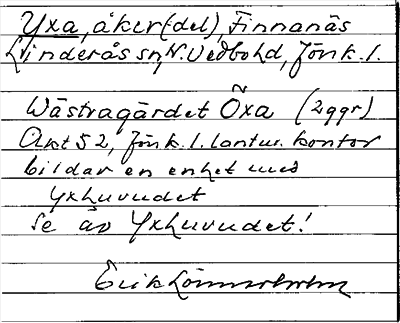 Yxa, åker(:del), Finnanäs
Linderås sn, N. Vedbo hd, Jönk. l.
Wästragärdet Öxa (2 ggr)
Akt 52, Jönk. l. lantm. kontor
bildar en enhet med
Yxhuvudet
Se äv Yxhuvudet!
Erik Lönnerholm